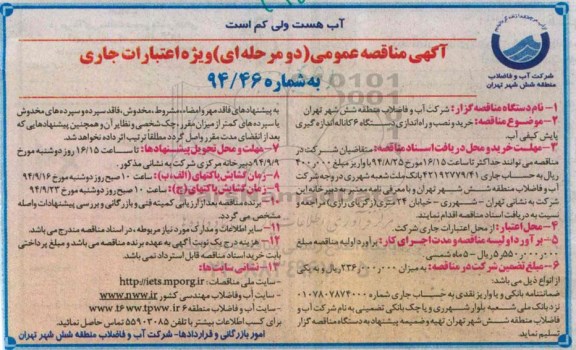 آب هست ولی کم است
آگهی مناقصه عمومی (دو مرحله ای) ویژه اعتبارات جاری
به شماره ۹۴/۴۶
شرکت آب و فاضلاب
منطقه شش شهر تهران
۱- نام دستگاه مناقصه گزار: شرکت آب و فاضلاب منطقه شش شهر تهران
۲- موضوع مناقصه: خرید و نصب و راه اندازی دستگاه ۶ کاناله اندازه گیری
پایش کیفی آب.
۳- مهلت خرید و محل دریافت اسناد مناقصه: متقاضیان شرکت در
مناقصه می توانند حداکثر تا ساعت ۱۶/۱۵ مورخ ۹۴/۸/۲۵ با واریز مبلغ ۴۰۰/۰۰۰
ریال به حساب جاری ۴۲۱۹۲۷۷۹/۴۱ بانک ملت شعبه شهرری در وجه شرکت
آب و فاضلاب منطقه شش شهر تهران و با معرفی نامه معتبر به دبیرخانه این
شرکت به نشانی تهران - شهرری - خیابان ۲۴ متری (زکریای رازی) مراجعه و
نسبت به دریافت اسناد مناقصه اقدام نمایند.
۴- محل اعتبار: از محل اعتبارات جاری شرکت.
۵- برآورد اولیه مناقصه و مدت اجرای کار: برآورد اولیه مناقصه مبلغ
۵/۵۵۰/۰۰۰/۰۰۰ ریال - ۵ ماه شمسی.
۶- مبلغ تضمین شرکت در مناقصه: به میزان ۲۳۶/۰۰۰/۰۰۰ ریال و به یکی
از انواع ذیل می باشد:
ضمانتنامه بانکی و یا واریز نقدی به حساب جاری شماره ۰۱۰۷۸۰۷۸۷۴۰۰۰
نزد بانک ملی شعبه بلوار شهرری و یا چک بانکی تضمینی به نام شرکت آب و
فاضلاب منطقه شش شهر تهران تهیه و ضمیمه پیشنهاد به دستگاه مناقصه گزار
تسلیم نماید.
به پیشنهادهای فاقد مهر و امضاء، مشروط، مخدوش، فاقد سپرده و سپرده های مخدوش
یا سپرده های کمتر از میزان مقرر، چک شخصی و نظایر آن و همچنین پیشنهادهایی که
بعد از انقضای مدت مقرر واصل گردد مطلقاً ترتیب اثر داده نخواهد شد.
۷- مهلت و محل تحویل پیشنهادها: تا ساعت ۱۶/۱۵ روز دوشنبه مورخ
۹۴/۹/۹ دبیرخانه مرکزی شرکت به نشانی مذکور.
۸- زمان گشایش پاکتهای (الف، ب): ساعت ۱۰ صبح روز دوشنبه مورخ ۹۴/۹/۱۶
۹- زمان گشایش پاکتهای (ج): ساعت ۱۰ صبح روز دوشنبه مورخ ۹۴/۹/۲۳
۱۰- برنده مناقصه بعد از ارزیابی کمیته فنی و بازرگانی و بررسی پیشنهادات واصله
مشخص می گردد.
۱۱- سایر اطلاعات و مدارک مورد نیاز مربوطه، در اسناد مناقصه مندرج می باشد.
۱۲- هزینه درج یک نوبت آگهی به عهده برنده مناقصه می باشد و مبلغ پرداختی
بابت خرید اسناد مناقصه قابل استرداد نمی باشد.
۱۳- نشانی سایت ها:
- سایت ملی مناقصات: http://iets.mporg.ir
- سایت آب و فاضلاب مهندسی کشور www.nww.ir
- سایت آب و فاضلاب منطقه ۶ www.tpww.ir
برای کسب اطلاعات بیشتر با تلفن ۵۵۹۰۳۰۸۵ تماس حاصل نمائید.
امور بازرگانی و قراردادها- شرکت آب و فاضلاب منطقه شش شهر تهران